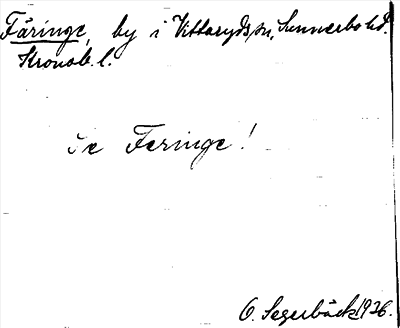 Färinge, by i Vittaryds sn, Sunnerbo hd.
Kronob. l.
Se Feringe!
O. Segerbäck 1926.